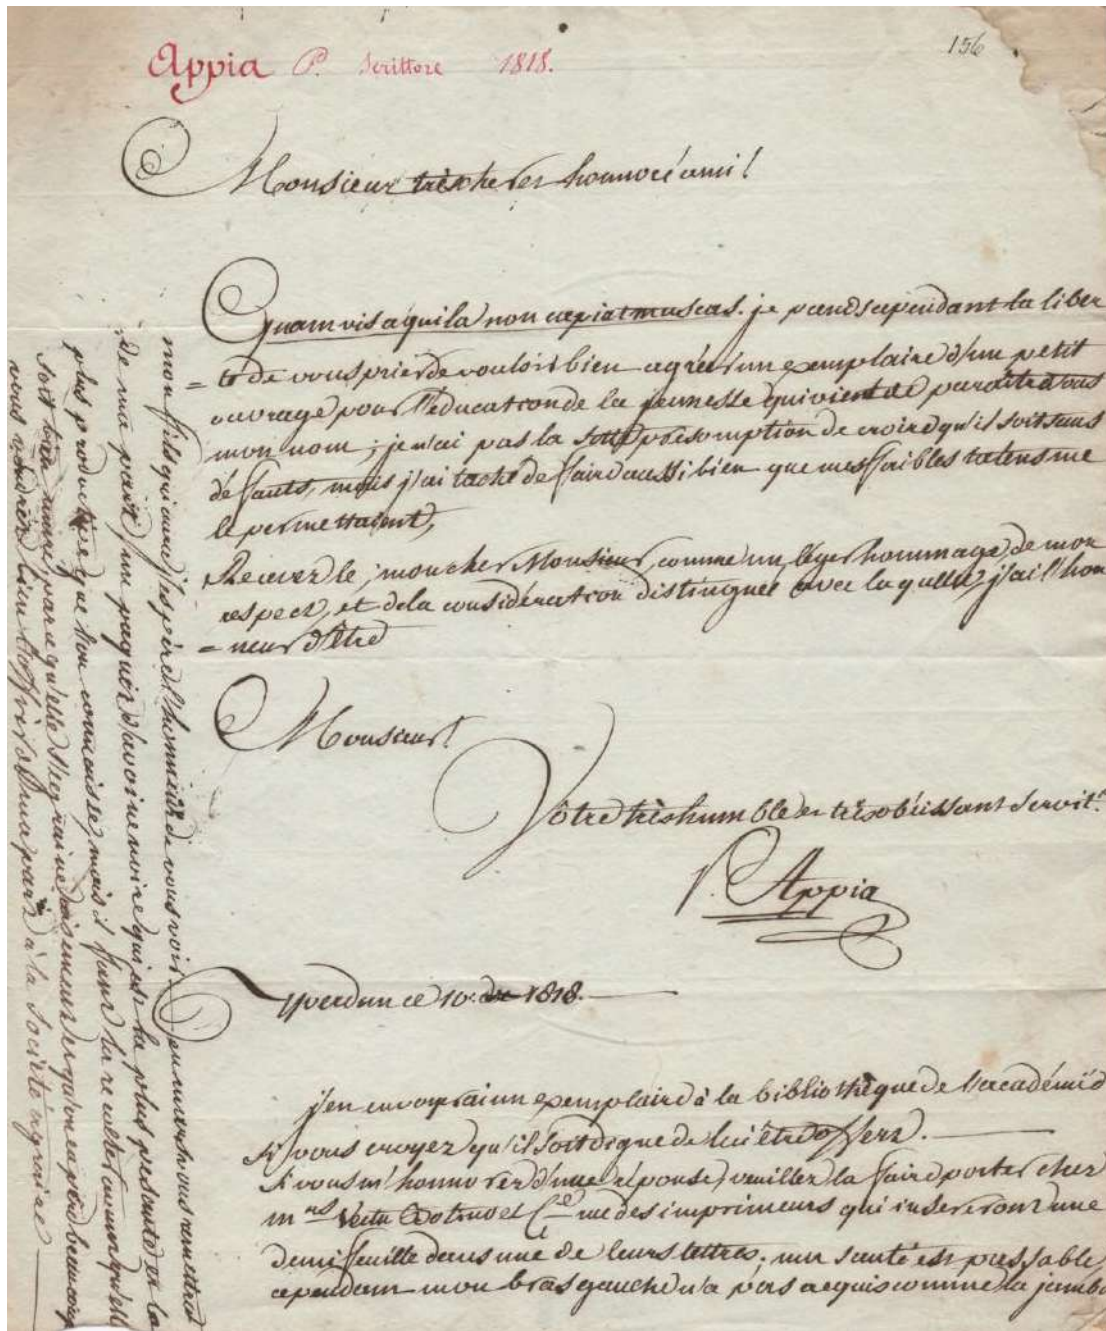 Appia P. Scrittore 1818.
156
Monsieur très cher et honnoré ami!
Quamvis aquila non capiat muscas. je prends cependant la liber
= té de vous prier de vouloir bien agréer un exemplaire d'un petit
ouvrage pour l'éducation de la jeunesse qui vient de paraître sous
mon nom; je n'ai pas la sotte présomption de croire qu'il soit sans
défauts, mais j'ai taché de faire aussi bien que mes faibles talens me
le permettaient,
Recevez le, mon cher Monsieur, comme un léger hommage, de mon
respect, et de la considération distinguée avec laquelle j'ai l'hon
= neur d'être
Monsieur!
Vôtre très humble et très obéissant servit.r
P. Appia
Yverdun ce 10. 1818.
j'en enverrai un exemplaire à la bibliothèque de l'académie
si vous croyez qu'il soit digne de lui être offert.
Si vous m'honnorez d'une réponse, veuillez la faire porter chez
m.rs et C.e rue des imprimeurs qui insereront une
demi feuille dans une de leurs lettres; ma santé est passable,
cependant mon bras gauche n'a pas acquis comme la jambe
mon fils qui aura j'espère l'honneur de vous voir, en vous remettra
de ma part un paquet d'avoine noire qui est la plus pesante et la
plus productive que l'on connaisse, mais il faut la recolter avant qu'elle
soit bien mûre, parce qu'elle s'egraine aisement et qu'on en perd beaucoup
vous voudrez bien l'offrir de ma part à la société agraire